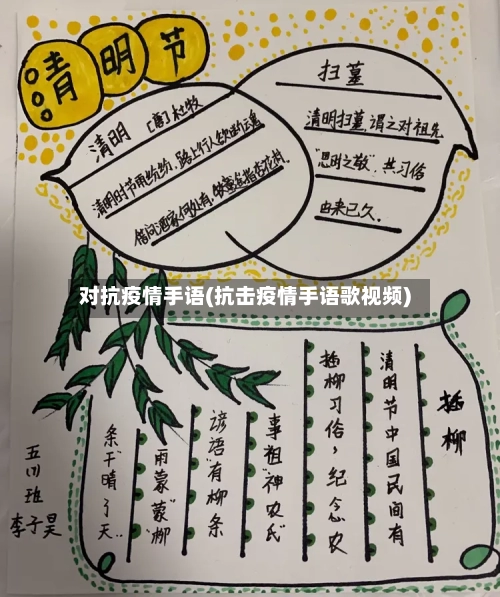 清明节
清明 [唐]杜牧
清明时节雨纷纷,路上行人欲
借问酒家何处有,牧童
扫墓
清明扫墓,谓之对祖先
"思时之敬",共习俗
由来已久。
对抗疫情手语(抗击疫情手语歌视频)
插柳
清明节中国民间有
插柳习俗,纪念农
事祖"神农氏"
谚语"有柳条
雨蒙"蒙"柳
条干晴了天"
五(1)班
李子昊